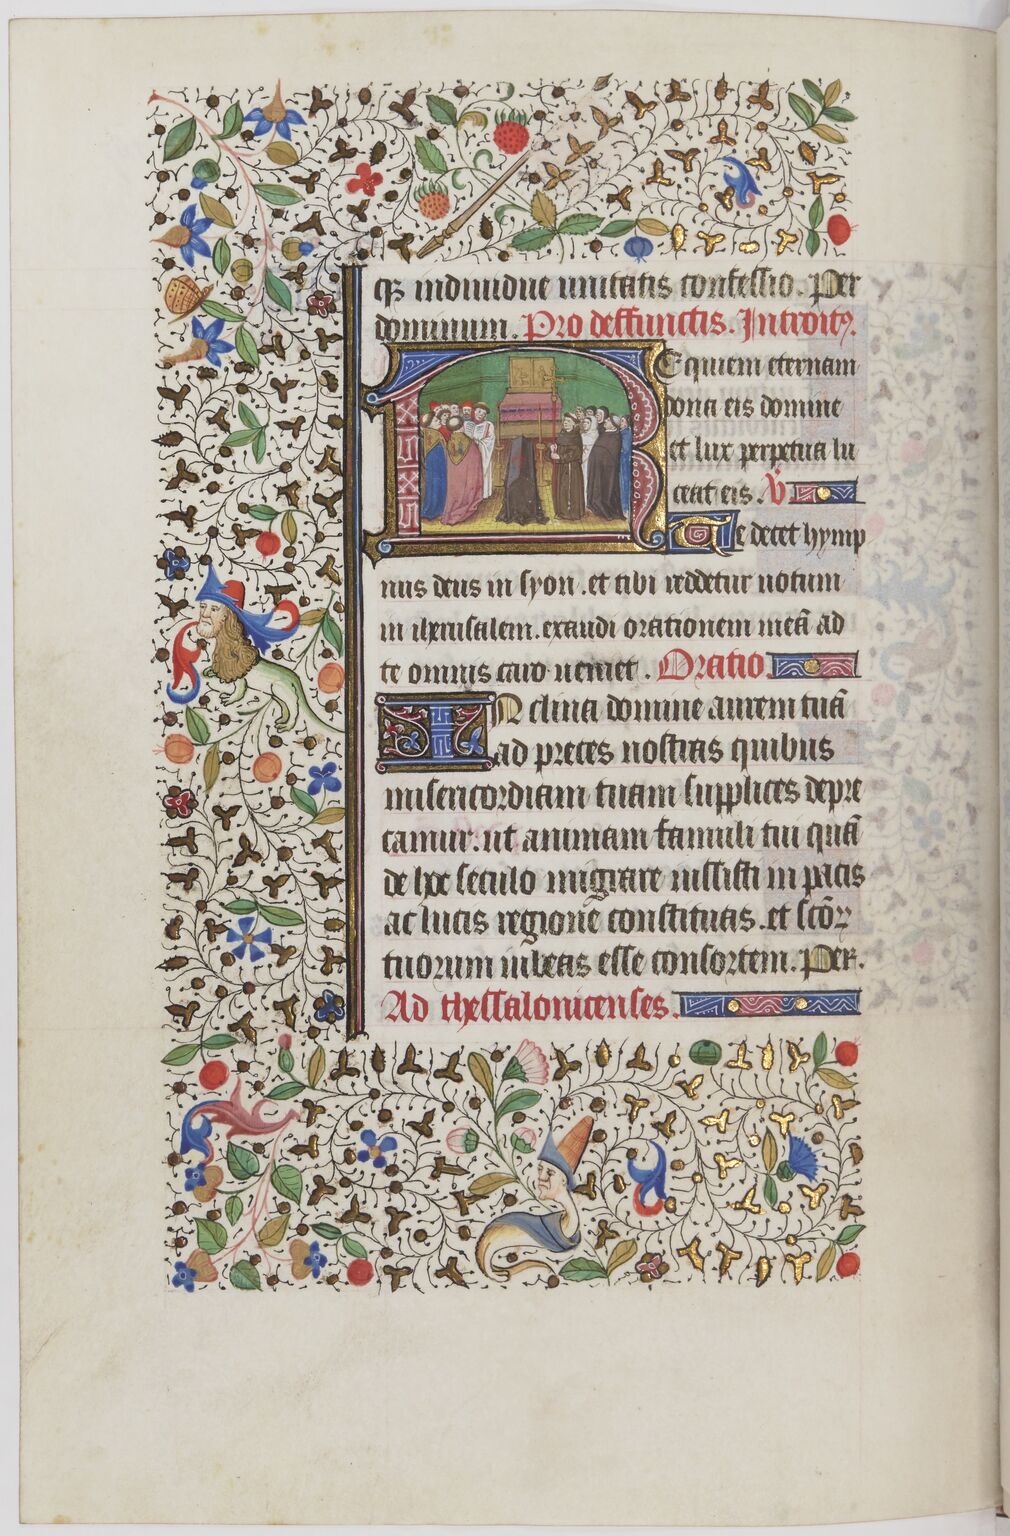 q3 indiuidue unitatis confessio. Per
dominum. Pro deffunctis. Introit9.
REquiem eternam
dona eis domine
et lux perpetua lu
ceat eis. V̾
Te decet hymp
nus deus in syon. et tibi reddetur uotum
in iherusalem. exaudi orationem meā ad
te omnis caro ueniet. Oratio.
IN clina domine aurem tuā
ad preces nostras quibus
misericordiam tuam supplices depre
camur. ut animam famuli tui quā
de hoc seculo migrare iussisti in pacis
ac lucis regione constituas. et scōꝝ
tuorum iubeas esse consortem. Per.
Ad thessalonicenses.